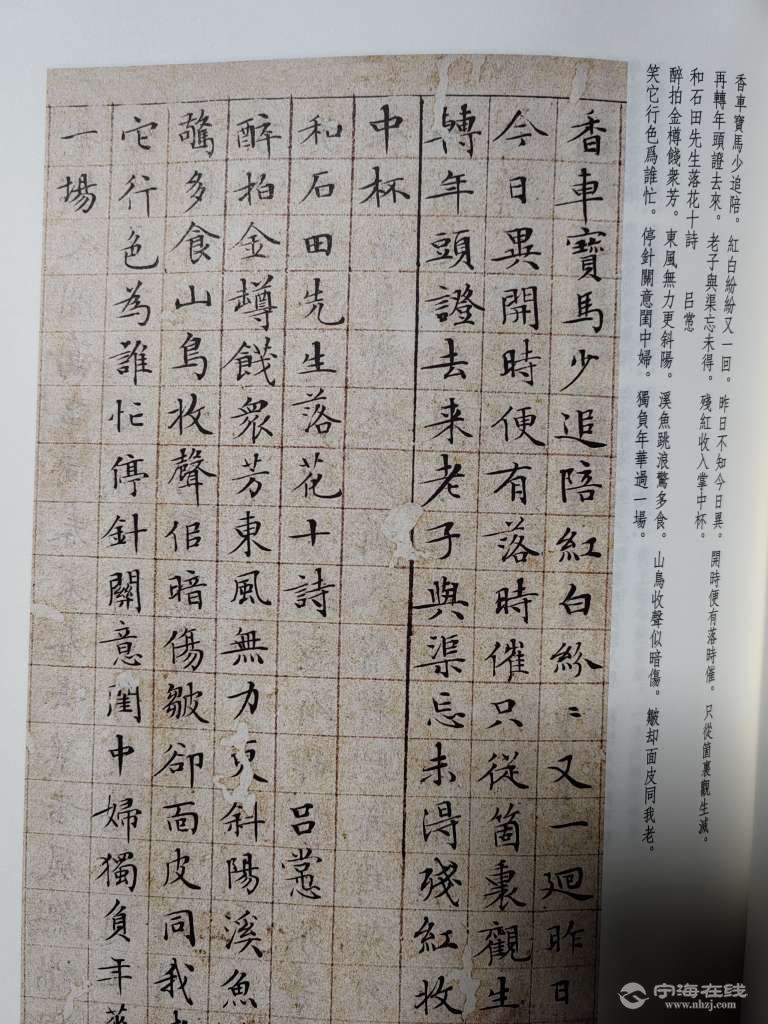 香車寶馬少追陪。紅白紛紛又一回。昨日不知今日異。開時便有落時催。只從箇裏觀生滅。
再轉年頭證去來。老子與渠忘未得。殘紅收入掌中杯。
和石田先生落花十詩 呂㦂
醉拍金樽餞衆芳。東風無力更斜陽。溪魚跳浪驚多食。山鳥收聲似暗傷。皺却面皮同我老。
笑它行色爲誰忙。停針關意閨中婦。獨負年華過一場。
香車寶馬少追陪紅白紛〻又一迴昨日
今日異開時便有落時催只從箇裏觀生
轉年頭證去来老子與渠忘未得殘紅收
中杯
和石田先生落花十詩 呂㦂
醉拍金樽餞衆芳東風無力更斜陽溪魚
驚多食山鳥收聲佀暗傷皺卻面皮同我
它行色為誰忙停針關意閨中婦獨負年華
一場
宁海在线
www.nhzj.com